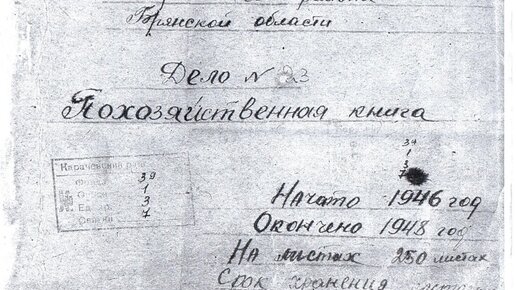 Брянской области
Дело № 23
Похозяйственная книга
39
1
3
7
Карачевский
39
О 1
Ед. 3
7
Начато 1946 год
Окончено 1948 год
На листах 250 листах
Срок хранения